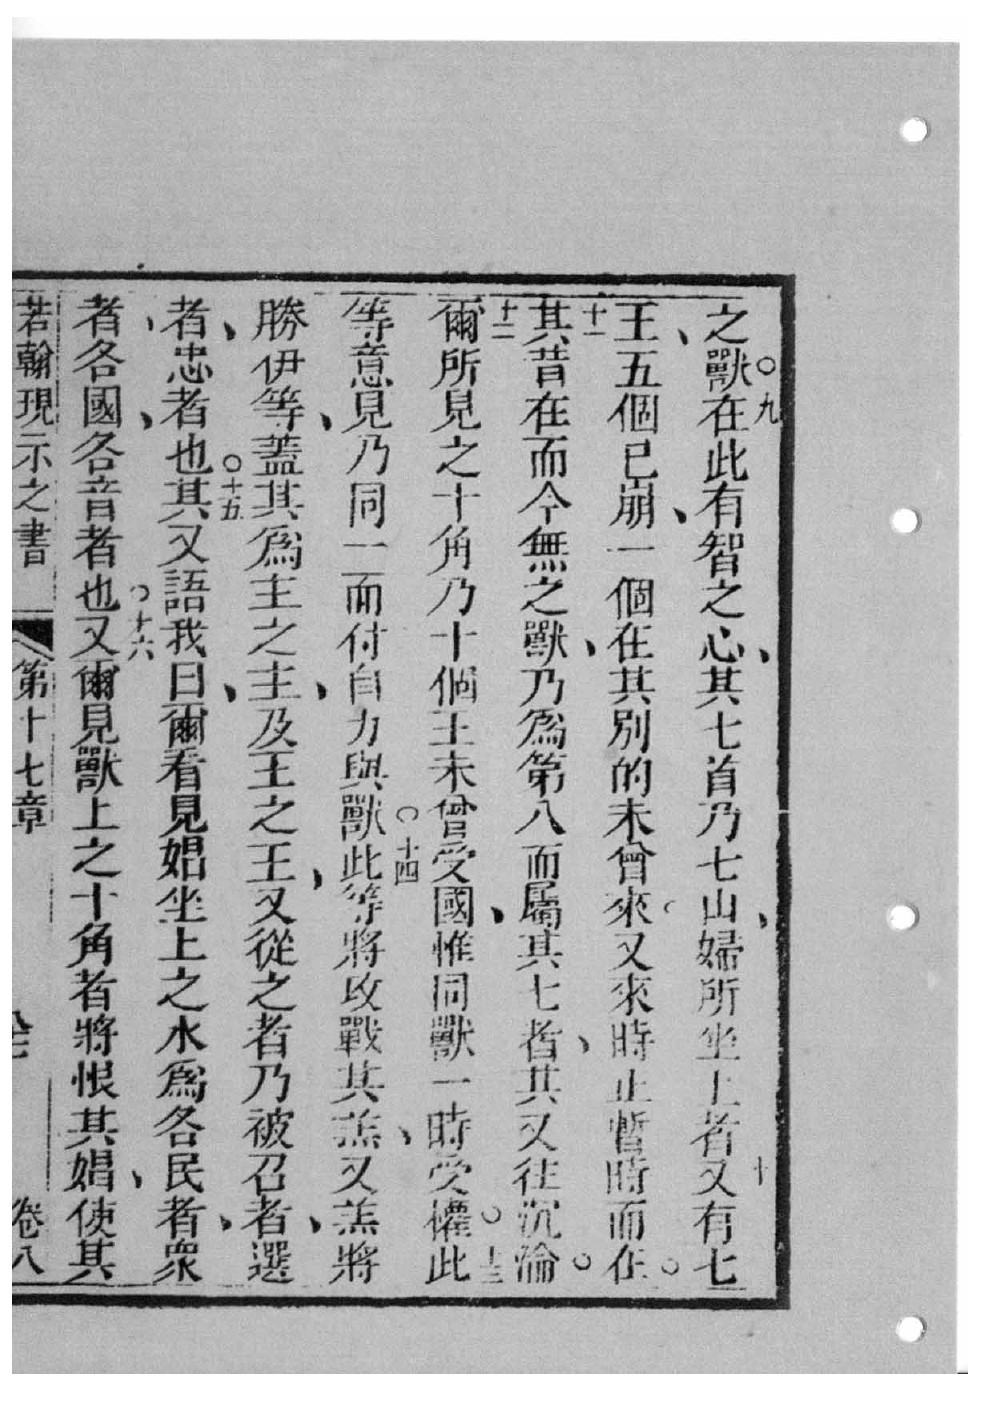 之獸○九在此有智之心、其七首乃七山婦所坐上者、又十有七
王、五個已崩、一個在其別的未曾來又來時止暫時而在○
十一其昔在而今無之獸、乃爲第八而屬其七者、其又往沉淪○
十二爾所見之十角乃十個王未曾受國、惟同獸一時受權○此十三
等意見乃同一而付自力與獸○十四此等將攻戰其羔、又羔將
勝伊等、蓋其爲主之主、及王之王、又從之者乃被召者、選
者、忠者也○十五其又語我曰、爾看見娼坐上之水爲各民者、衆
者、各國、各音者也○十六又爾見獸上之十角者將恨其娼、使其
若翰現示之書 第十七章 卷八